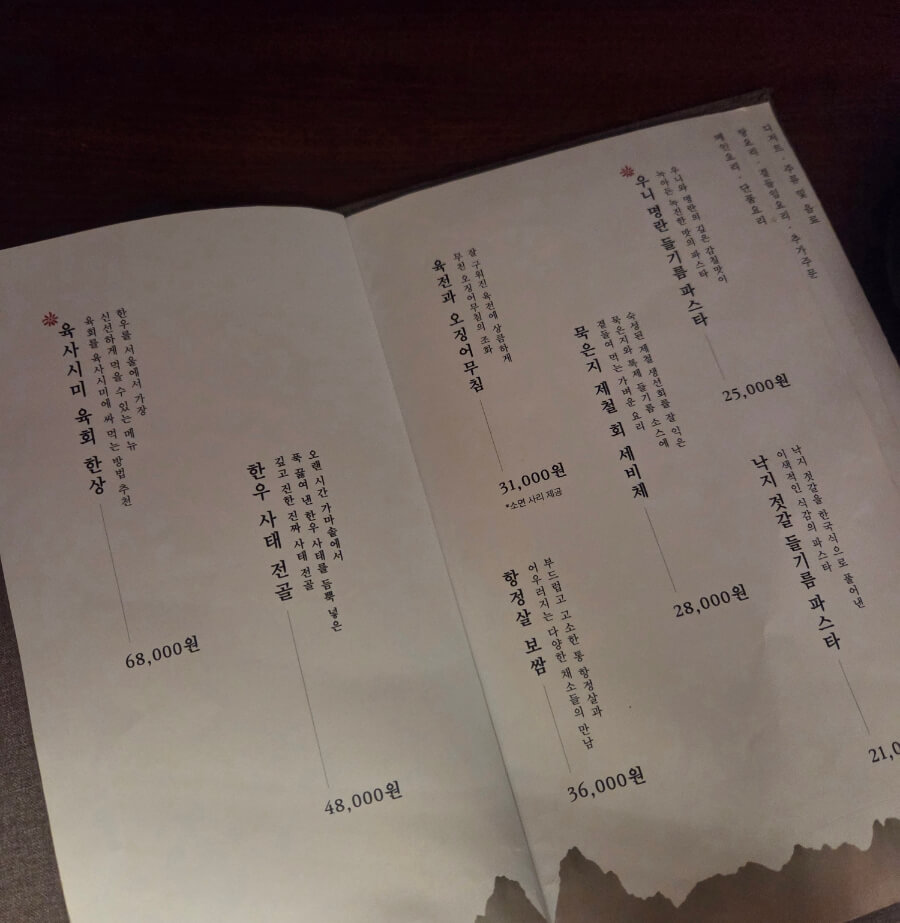 디저트 · 주류 및 음료
곁들임요리 · 추가주문
메인요리 · 단품요리
우니 명란 들기름 파스타
우니와 명란의 깊은 감칠맛이
녹아든 녹진한 맛의 파스타
25,000원
낙지 젓갈 들기름 파스타
낙지 젓갈을 한국식으로 풀어낸
이색적인 식감의 파스타
21,0
묵은지 제철 회 세비체
숙성된 제철 생선회를 잘 익은
묵은지와 특제 들기름 소스에
곁들여 먹는 가벼운 요리
28,000원
육전과 오징어무침
잘 구워진 육전에 상큼하게
무친 오징어무침의 조화
31,000원
*소면 사리 제공
항정살 보쌈
부드럽고 고소한 통 항정살과
어우러지는 다양한 채소들의 만남
36,000원
한우 사태 전골
오랜 시간 가마솥에서
푹 끓여낸 한우 사태를 듬뿍 넣은
깊고 진한 진짜 사태 전골
48,000원
육사시미 육회 한상
한우를 서울에서 가장
신선하게 먹을 수 있는 메뉴
육회를 육사시미에 싸 먹는 방법 추천
68,000원